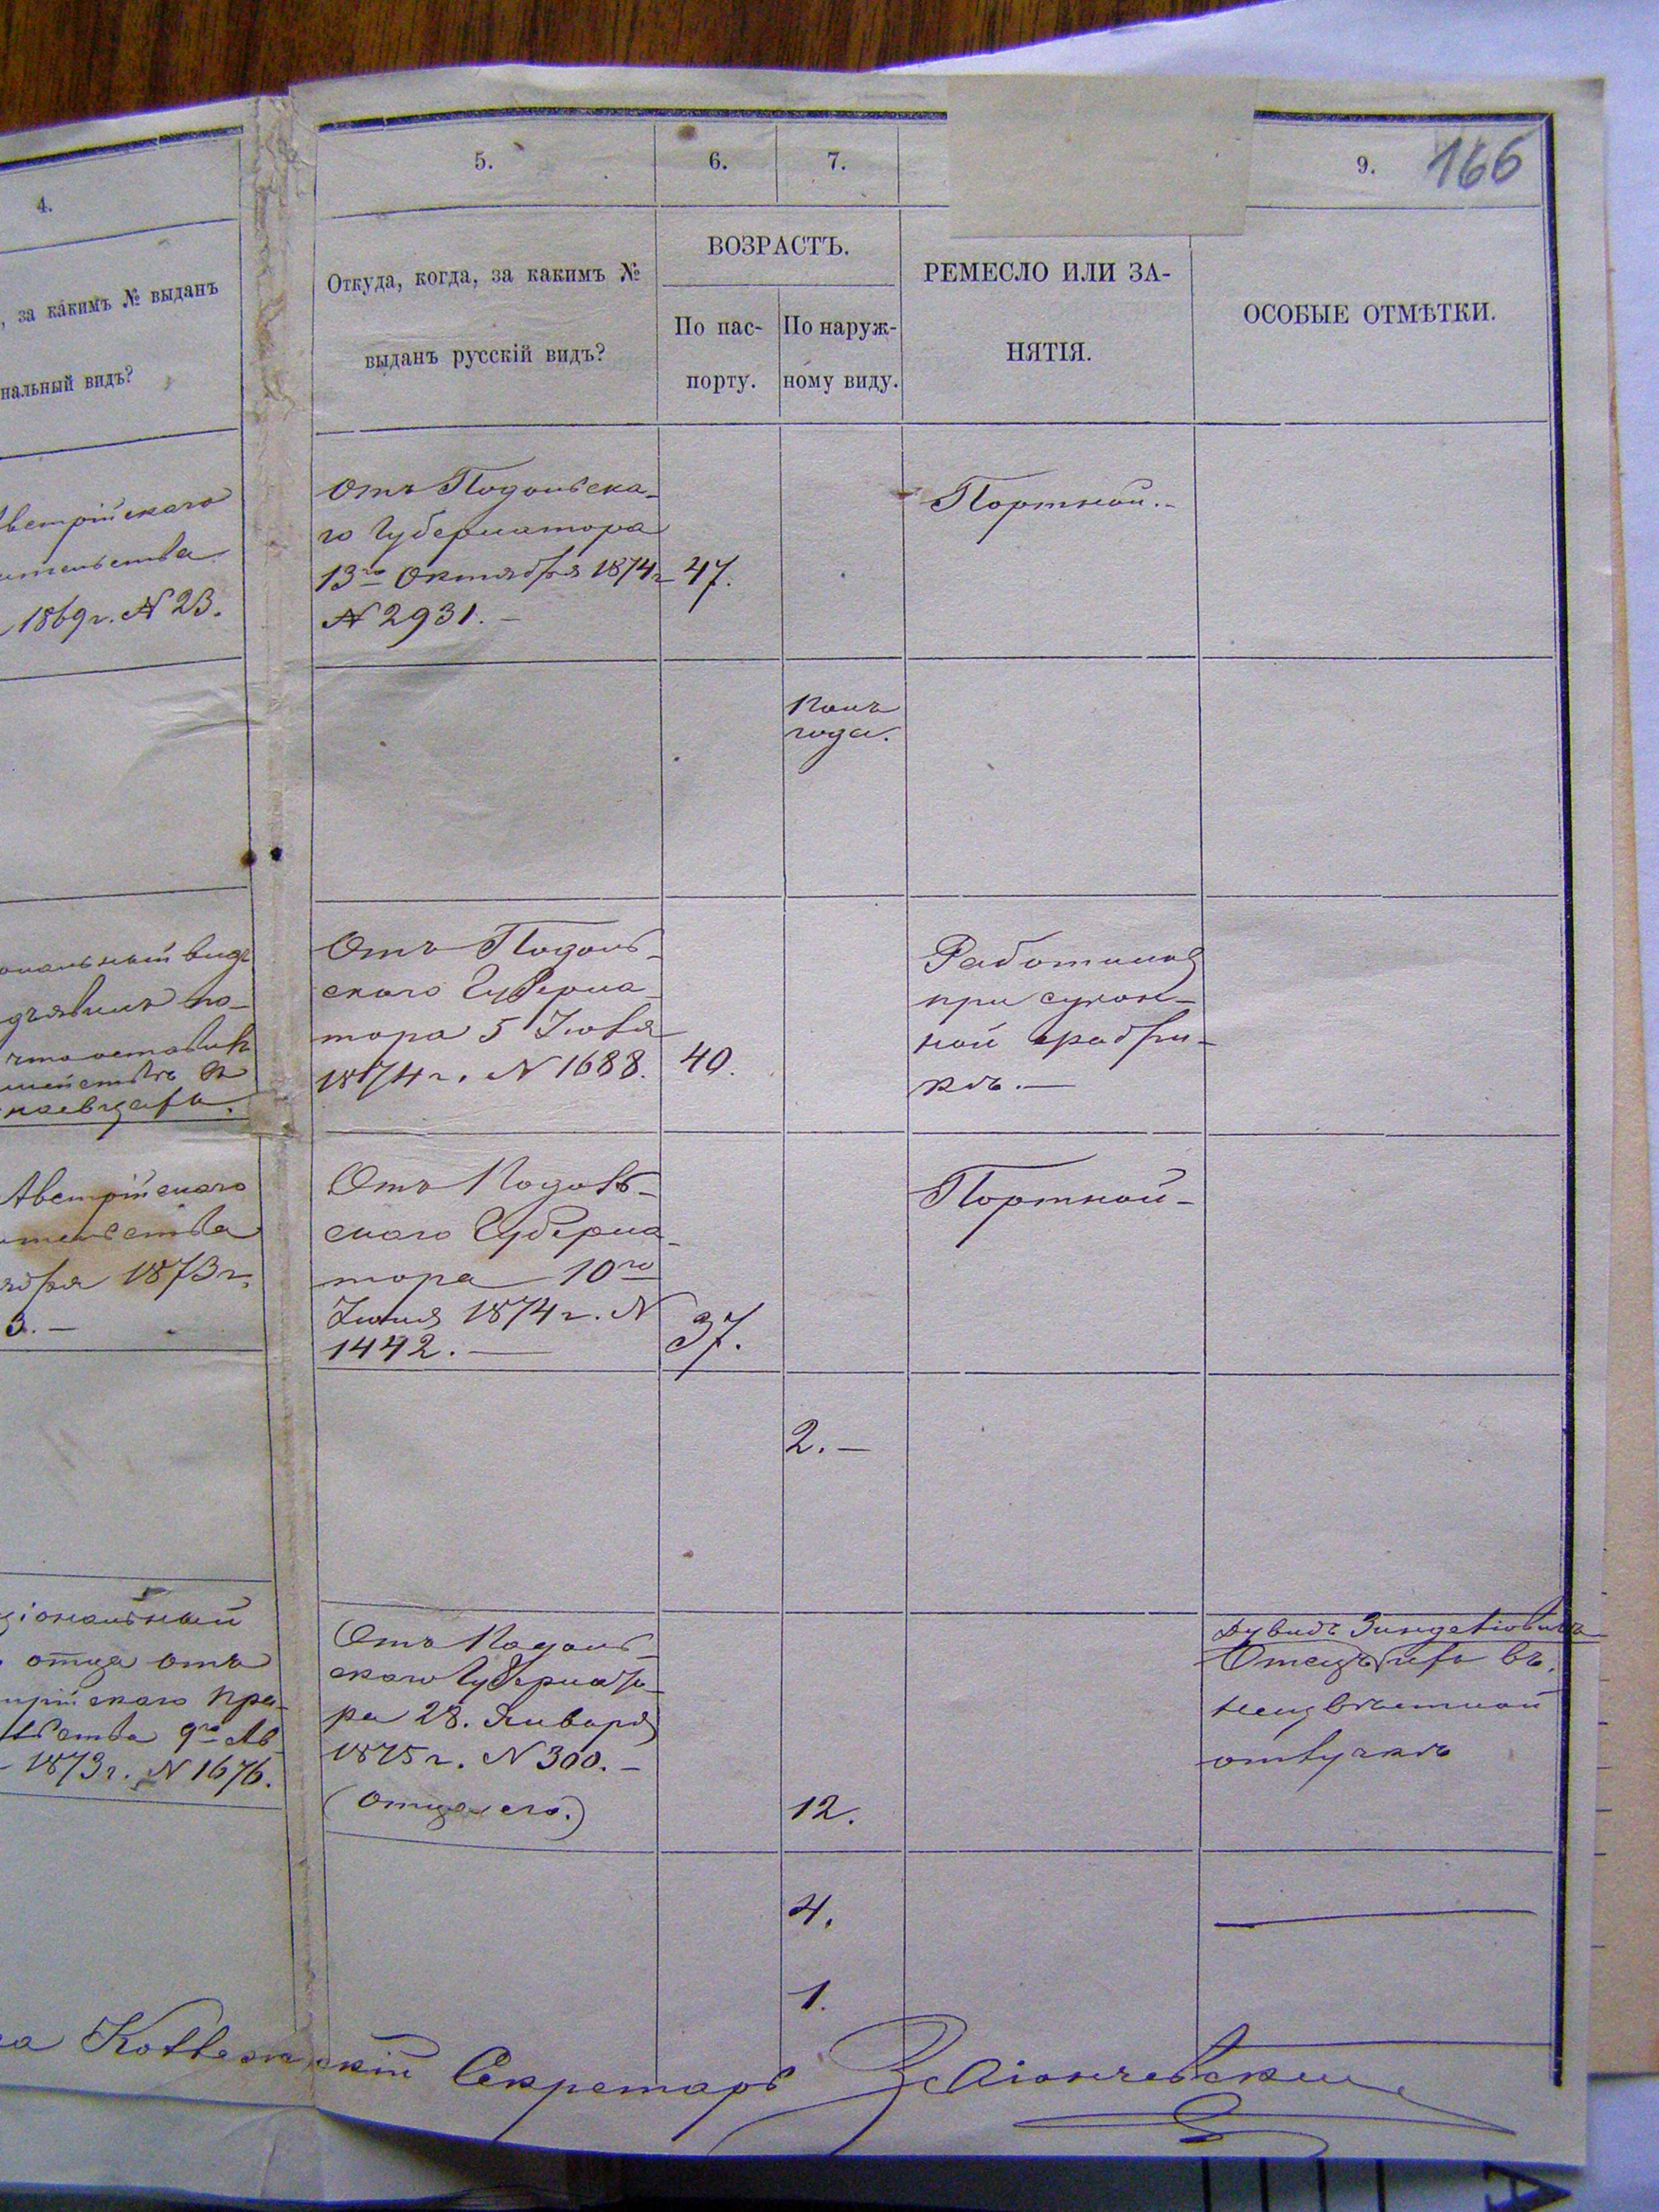 4.
5.
6.
7.
9.
166
, за какимъ № выданъ
нальный видъ?
Откуда, когда, за какимъ №
выданъ русскій видъ?
ВОЗРАСТЪ.
По пас-
порту.
По наруж-
ному виду.
РЕМЕСЛО ИЛИ ЗА-
НЯТІЯ.
ОСОБЫЕ ОТМѢТКИ.
Австрійскаго
ительства
1869 г. № 23.
Отъ Подольска-
го Губернатора
13го Октября 1874 г
№ 2931. —
47.
Портной. -
Полъ
года.
ональный видъ
дъявилъ по-
что оставилъ
Отъ Подоль-
скаго Губерна-
тора 5 Іюля
1874 г. № 1688.
40.
Работникъ
при сукон-
ной фабри-
кѣ. —
Австрійскаго
ительства
ября 1873 г.
3. —
Отъ Подоль-
скаго Губерна-
тора 10го
Іюня 1874 г. №
1492. —
37.
Портной -
2. —
ціональный
отца отъ
трійскаго Пра-
льства 9го Ав
1873 г. № 1676.
Отъ Подоль-
скаго Губернато-
ра 28. Января
1875 г. № 300. —
(отца его.)
12.
Дувидъ
Отецъ въ
неизвѣстной
отлучкѣ
4.
1.
Секретарь Заіончевскій